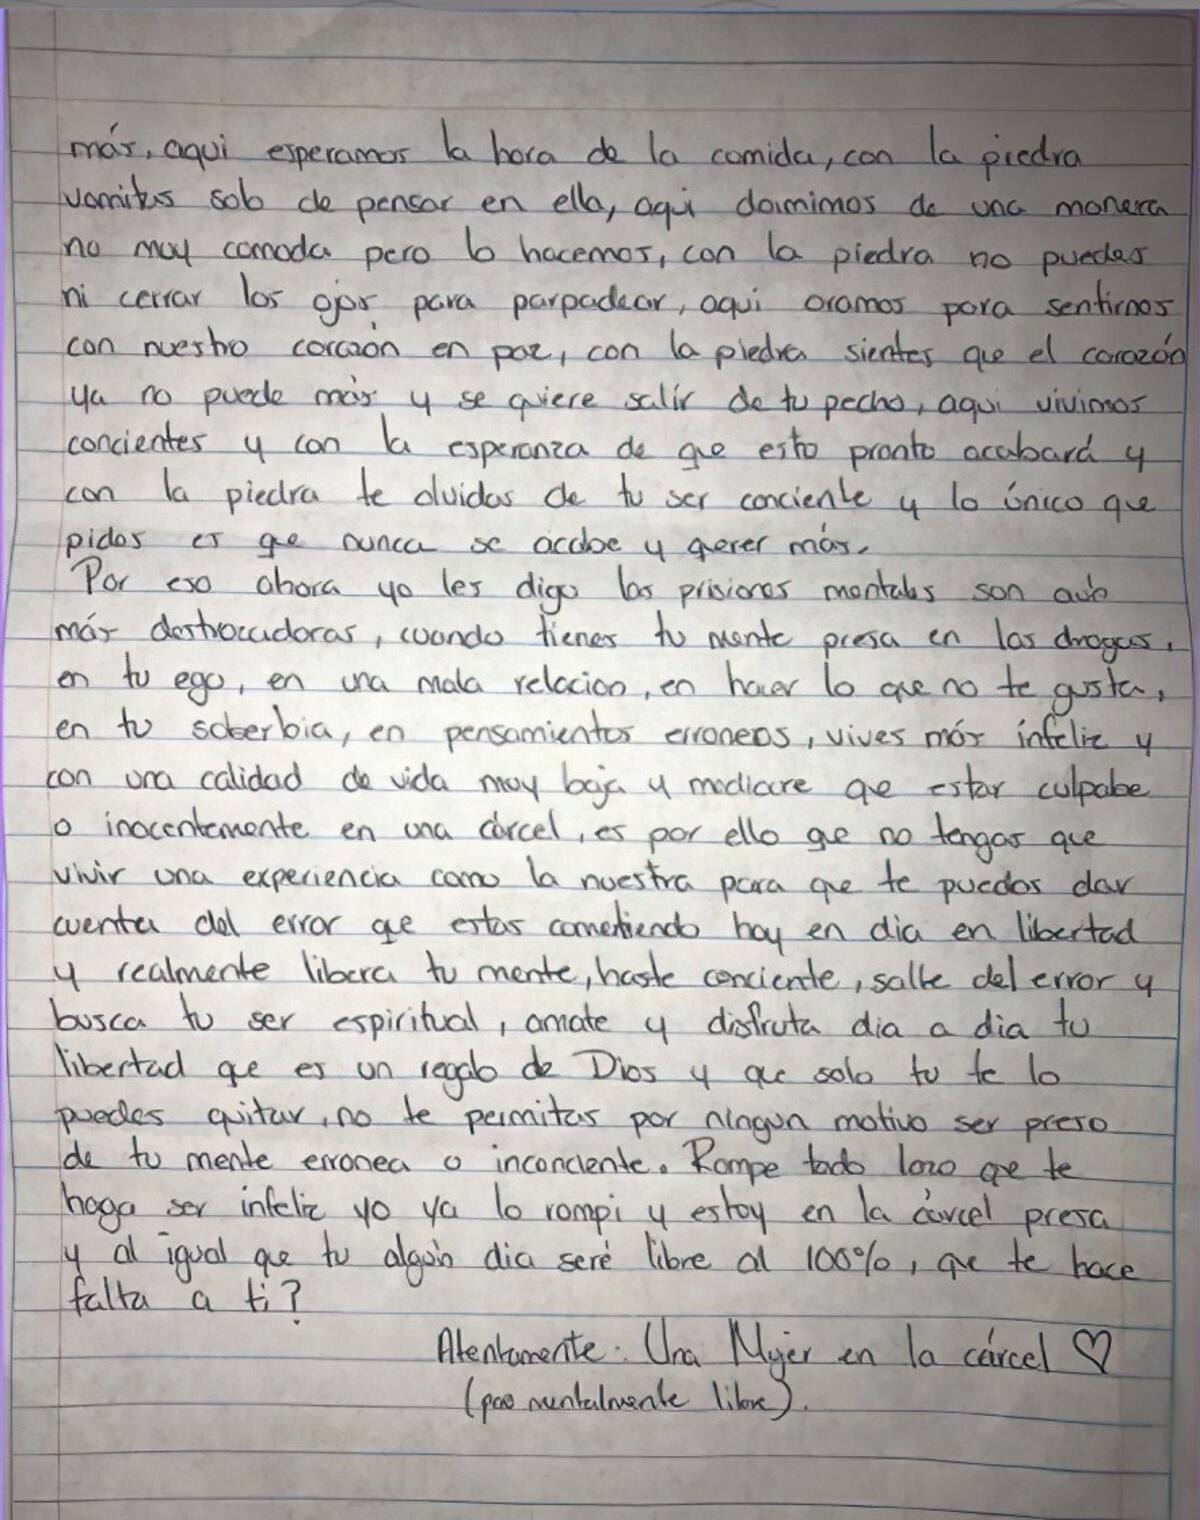 más, aqui esperamos la hora de la comida, con la piedra
vomitas solo de pensar en ella, aqui dormimos de una manera
no muy comoda pero lo hacemos, con la piedra no puedes
ni cerrar los ojos para parpadear, aqui oramos para sentirnos
con nuestro corazón en paz, con la piedra sientes que el corazón
ya no puede más y se quiere salir de tu pecho, aqui vivimos
concientes y con la esperanza de que esto pronto acabará y
con la piedra te olvidas de tu ser conciente y lo único que
pides es que nunca se acabe y querer más.
Por eso ahora yo les digo las prisiones mentales son aún
más destrozadoras, cuando tienes tu mente presa en las drogas,
en tu ego, en una mala relacion, en hacer lo que no te gusta,
en tu soberbia, en pensamientos erroneos, vives más infeliz y
con una calidad de vida muy baja y mediocre que estar culpable
o inocentemente en una cárcel, es por ello que no tengas que
vivir una experiencia como la nuestra para que te puedas dar
cuenta del error que estas cometiendo hoy en dia en libertad
y realmente libera tu mente, haste conciente, salte del error y
busca tu ser espiritual, amate y disfruta dia a dia tu
libertad que es un regalo de Dios y que solo tu te lo
puedes quitar, no te permitas por ningun motivo ser preso
de tu mente erronea o inconciente. Rompe todo lazo que te
haga ser infeliz yo ya lo rompi y estoy en la cárcel presa
y al igual que tu algún dia seré libre al 100%, que te hace
falta a ti?
Atentamente: Una Mujer en la cárcel ♡
(pero mentalmente libre).